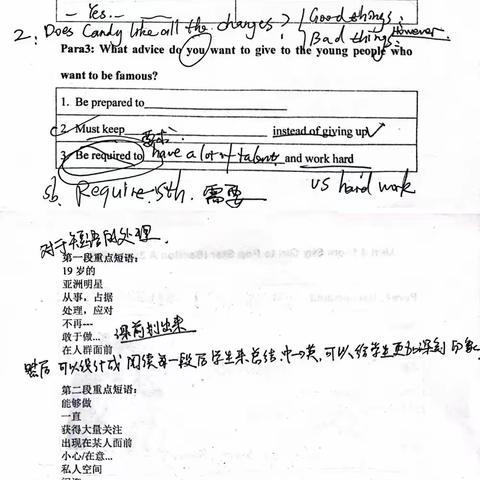 Yes.
2: Does Candy like all the changes? Good things:
Bad things: However
Para3: What advice do you want to give to the young people who
want to be famous?
1. Be prepared to
2. Must keep instead of giving up
要求:
3. Be required to have a lot of talent and work hard
sb. Require. sth. 需要 VS hard work
对于短语的处理.
第一段重点短语:
19 岁的
亚洲明星
从事,占据
处理,应对
不再---
敢于做... 课前划出来
在人群面前
然后可以设计成阅读每一段后学生来总结,中→英,可以给学生更加深刻印象
第二段重点短语:
能够做
一直
获得大量关注
出现在某人面前
小心/在意...
私人空间